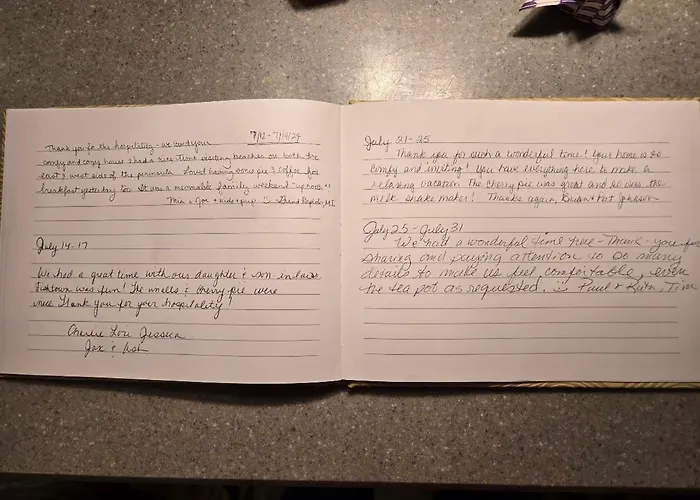 7/12 - 7/14/24
Thank you for the hospitality - we loved your
comfy and cozy house & had a nice time visiting beaches on both the
east & west side of the peninsula. Loved having some pie & coffee for
breakfast yesterday too. It was a memorable family weekend "up north"!
Mia & Joe + kids & pup! ☺ Grand Rapids, MI
July 14-17
We had a great time with our daughter & son in laws
Fishtown was fun! The smells & cherry pie were
nice. Thank you for your hospitality!
Charlie Lori Jessica
Jax & Ash
July 21-25
Thank you for such a wonderful time! Your home is so
comfy and inviting! You have everything here to make a
relaxing vacation. The cherry pie was great and so was the
milk shake maker! Thanks again, Brian & Pat Johnson
July 25 - July 31
We had a wonderful time here - Thank-you for
sharing and paying attention to so many
details to make us feel comfortable, even
the tea pot as requested. ☺ Paul & Tim